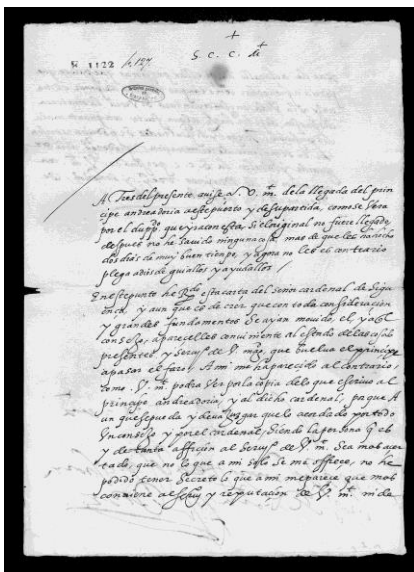 +
S. C. C. Mt
E 1122 fo 127
A Tres del presente avise a V. Mt. de la llegada del prin
cipe andrea doria a este puerto y de su partida, como se vera
por el dupp.do que yra con esta, si el original no fuere llegado
despues no ha sucedido ninguna cosa, mas de que les ha hecho
dos dias de muy buen tiempo, y agora no les es contrario
plega a dios de guiallos y ayudallos /
En este punto he rdo esta carta del señor cardenal de Sigu
ença, y aun que es de creer que con toda consideracion
y grandes fundamentos se ayan movido, el y al
consejo, a parecelles conviniente al estado de las cosas
presentes y servi.o de V. mag. que buelva el principe
a pasar el faro, A mi me ha parecido al contrario,
como V. Mt. podra ver por la copia de lo que escrivo al
principe andrea doria, y al dicho cardenal, pa que A
un que se pueda y deva juzgar que lo acordado por todo
un consejo y por el cardenal, siendo la persona q es
y de tanta afficion al servi.o de V. Mt. sea mas acer
tado, que no lo que a mi solo se me offrece, no he
podido tener secreto lo que a mi me parece que mas
conviene al servi.o y reputacion de V. Mt. ni de